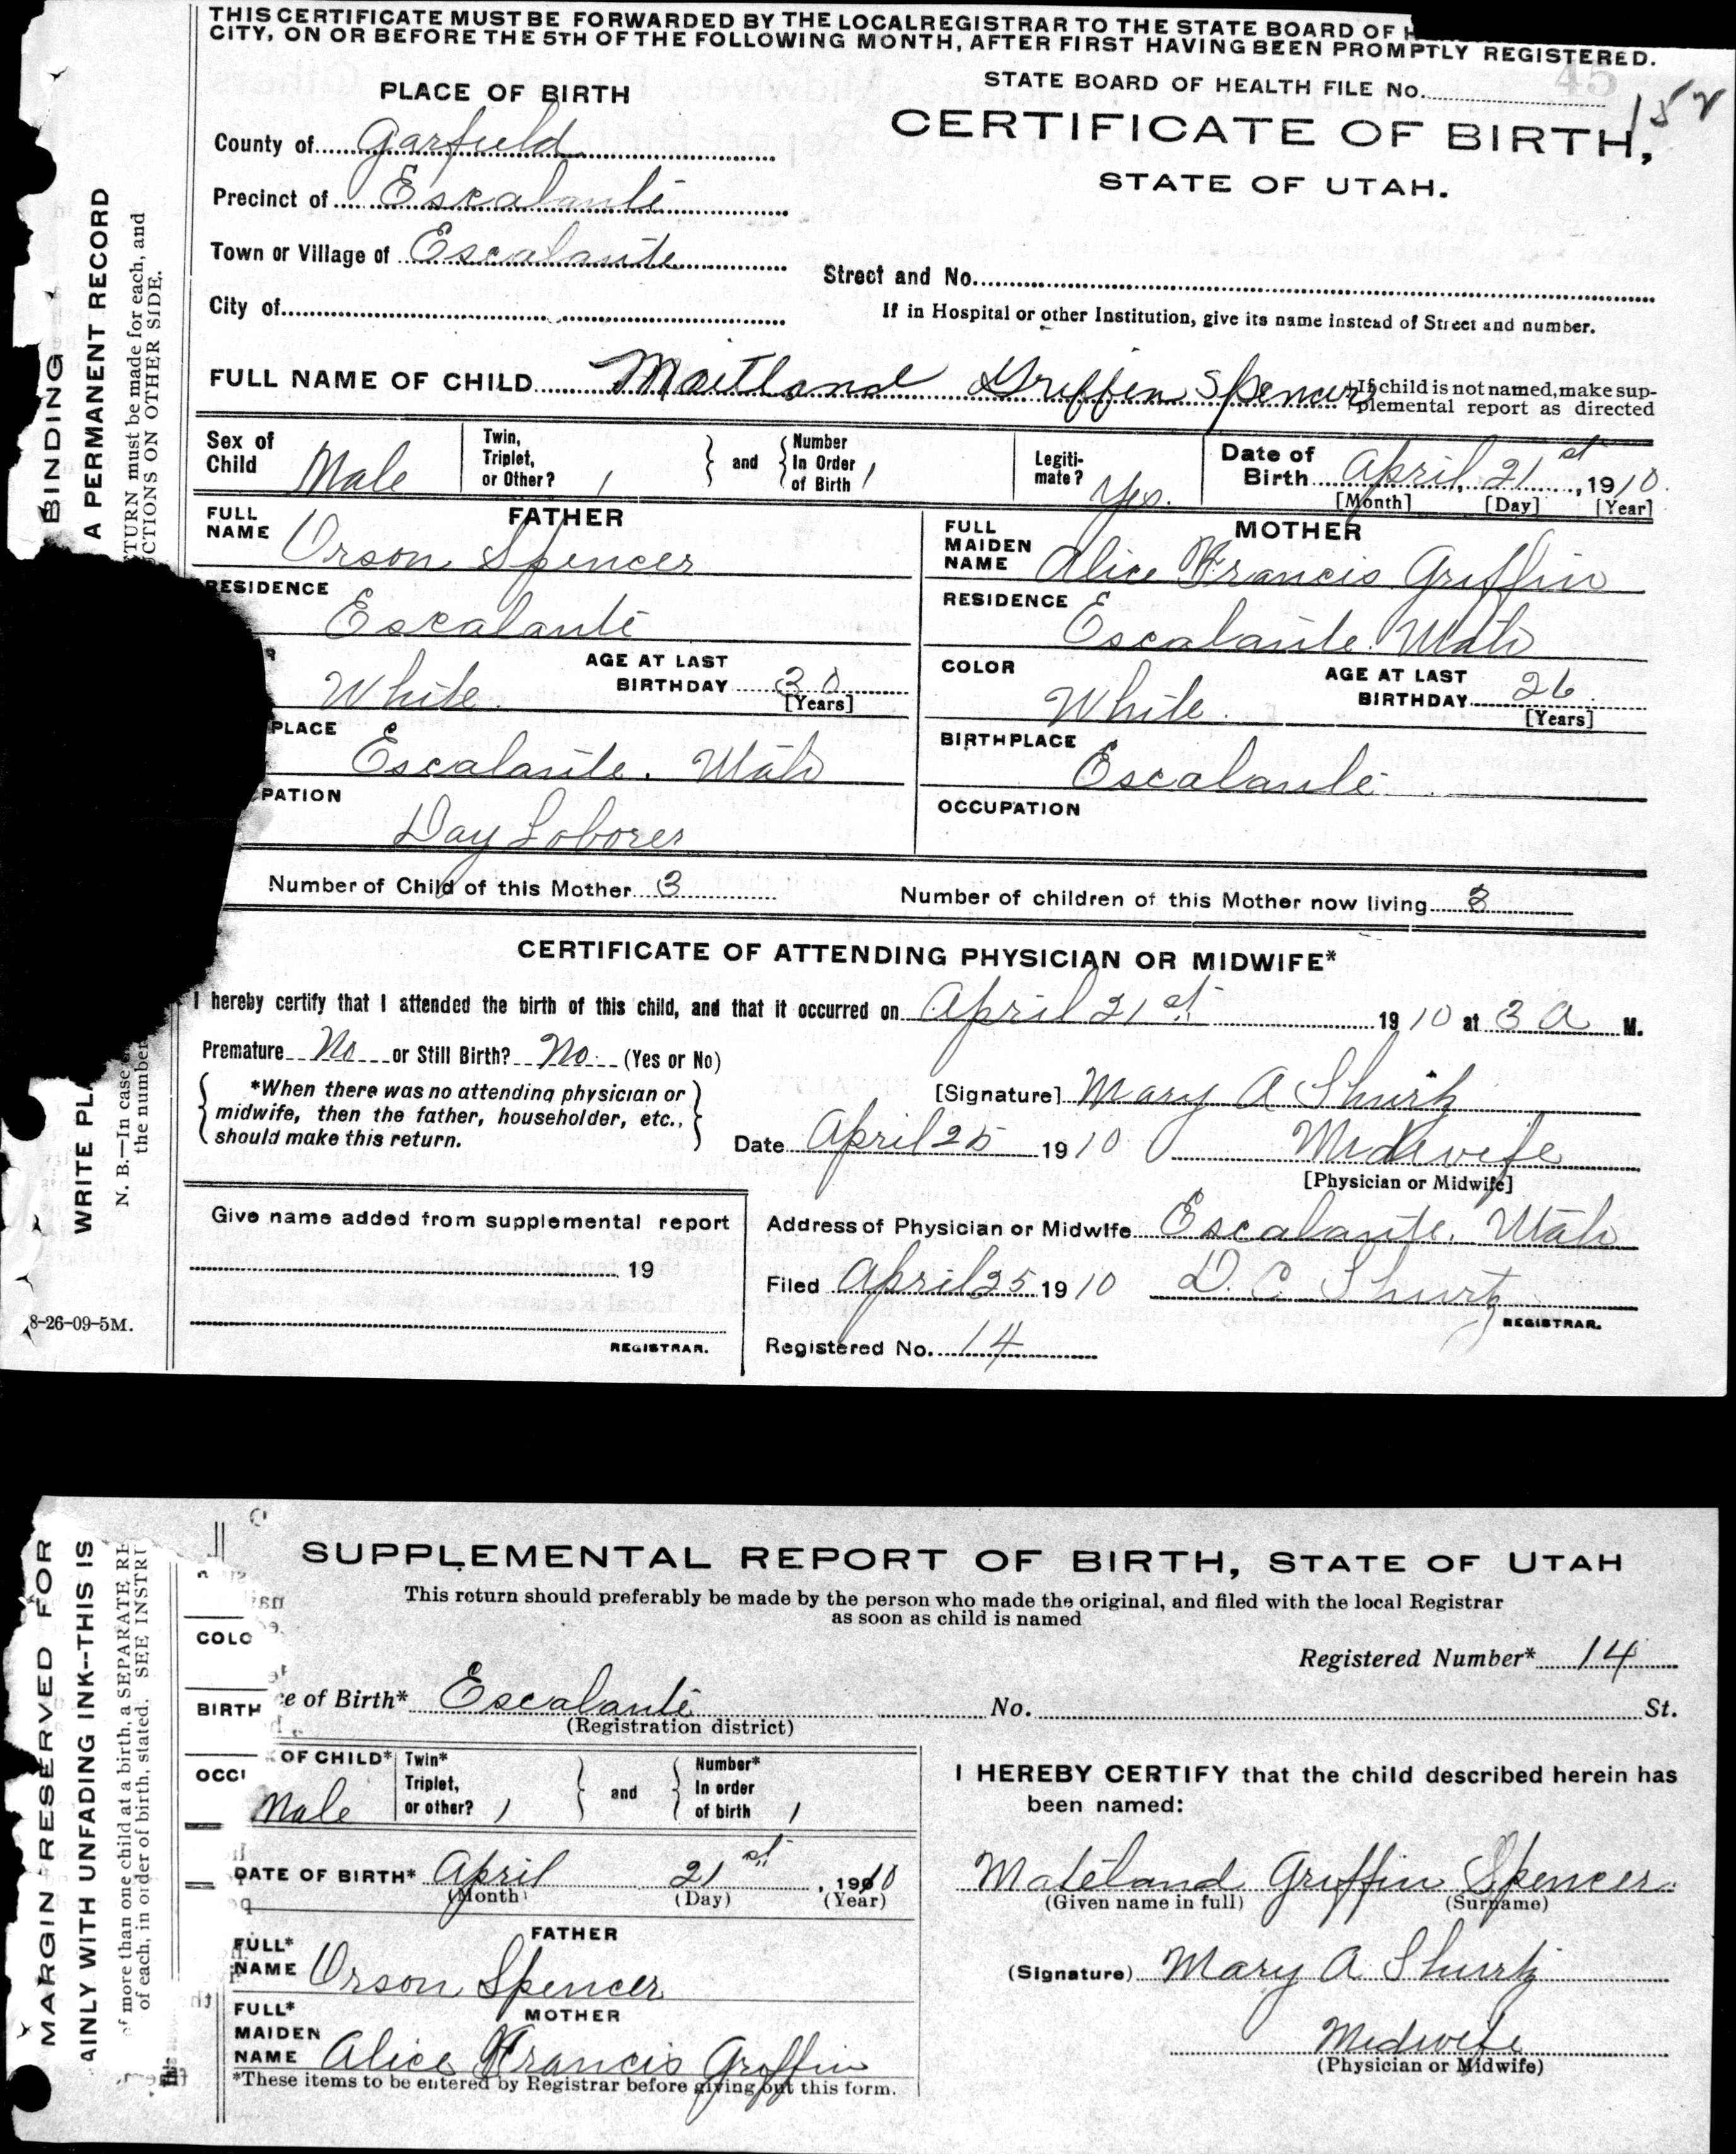 THIS CERTIFICATE MUST BE FORWARDED BY THE LOCAL REGISTRAR TO THE STATE BOARD OF H
CITY, ON OR BEFORE THE 5TH OF THE FOLLOWING MONTH, AFTER FIRST HAVING BEEN PROMPTLY REGISTERED.
45
STATE BOARD OF HEALTH FILE No.
152
CERTIFICATE OF BIRTH,
STATE OF UTAH.
PLACE OF BIRTH
County of Garfield
Precinct of Escalante
Town or Village of Escalante
City of
Street and No.
If in Hospital or other Institution, give its name instead of Street and number.
FULL NAME OF CHILD Maitland Griffin Spencer
If child is not named, make sup-
plemental report as directed
Sex of Child Male
Twin, Triplet, or Other? 1 and Number In Order of Birth 1
Legiti-mate? Yes.
Date of Birth April 21st, 1910.
[Month] [Day] [Year]
FATHER
FULL NAME Orson Spencer
RESIDENCE
Escalante
White AGE AT LAST BIRTHDAY 30
[Years]
PLACE
Escalante. Utah
PATION
Day Loborer
MOTHER
FULL MAIDEN NAME Alice Francis Griffin
RESIDENCE
Escalante Utah
COLOR White AGE AT LAST BIRTHDAY 26
[Years]
BIRTHPLACE
Escalante
OCCUPATION
Number of Child of this Mother 3
Number of children of this Mother now living 3
CERTIFICATE OF ATTENDING PHYSICIAN OR MIDWIFE*
I hereby certify that I attended the birth of this child, and that it occurred on April 21st 1910 at 3 A M.
Premature No or Still Birth? No. (Yes or No)
*When there was no attending physician or
midwife, then the father, householder, etc.,
should make this return.
[Signature] Mary A Shurtz
Date April 25 1910 Midwife
[Physician or Midwife]
Give name added from supplemental report
19
REGISTRAR.
Address of Physician or Midwife Escalante. Utah
Filed April 25 1910 D. C. Shurtz
REGISTRAR.
Registered No. 14
8-26-09-5M.
BINDING
A PERMANENT RECORD
TURN must be made for each, and
CTIONS ON OTHER SIDE.
WRITE PLA
N. B.—In case
the number
SUPPLEMENTAL REPORT OF BIRTH, STATE OF UTAH
This return should preferably be made by the person who made the original, and filed with the local Registrar
as soon as child is named
Registered Number* 14
ce of Birth* Escalante No. St.
(Registration district)
OF CHILD* Male
Twin* Triplet, or other? 1 and Number* In order of birth 1
DATE OF BIRTH* April 21st, 1910
(Month) (Day) (Year)
FATHER
FULL* NAME Orson Spencer
MOTHER
FULL* MAIDEN NAME Alice Francis Griffin
*These items to be entered by Registrar before giving out this form.
I HEREBY CERTIFY that the child described herein has
been named:
Mateland Griffin Spencer.
(Given name in full) (Surname)
(Signature) Mary A Shurtz
Midwife
(Physician or Midwife)
COLO
BIRTH
OCCU
MARGIN RESERVED FOR
AINLY WITH UNFADING INK--THIS IS
of more than one child at a birth, a SEPARATE RE
of each, in order of birth, stated. SEE INSTRU